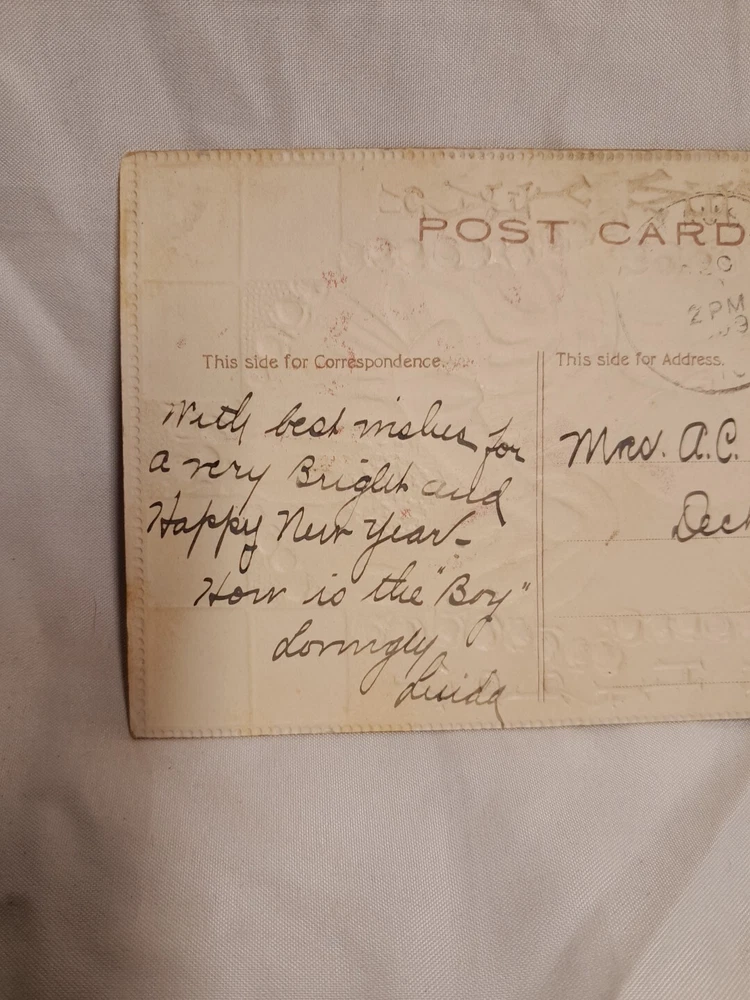 POST CARD
2 PM
This side for Correspondence.
This side for Address.
With best wishes for
a very Bright and
Happy New Year-
How is the "Boy"
Lovingly
Mrs. A.C.